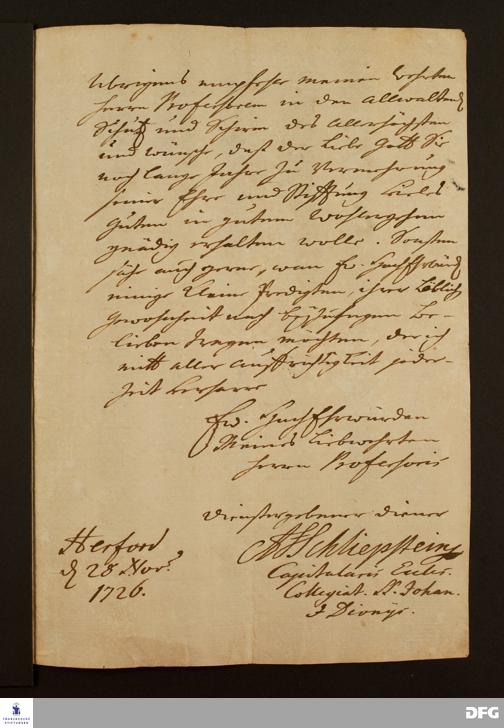 Ubrigens empfehle meinen wehrten
Herrn Professorem in den allwaltend
Schutz und Schirm des Allerhöchsten
und wünsche, daß der liebe Gott Sie
noch lange Jahre zu Vermehrung
seiner Ehre und Stifftung vieles
Guten in gutem Wohlergehen
gnädig erhalten wolle. Sonsten
sähe auch gerne, wan Ew. HochEhrwürd
einige kleine Predigten, ihrer löblich
Gewohnheit nach beyzufügen be-
lieben tragen möchten, der ich
mitt aller auffrichtigkeit jeder-
Zeit verharre
Ew. HochEhrwürden
Meines liebwehrten
Herrn Professoris
Dienstergebener Diener
Schliepstein
Capitularis Eccles.
Collegiat. SS. Johan.
& Dionys.
Herford
d 28 Nov.
1726.
FRANCKESCHE
STIFTUNGEN
DFG